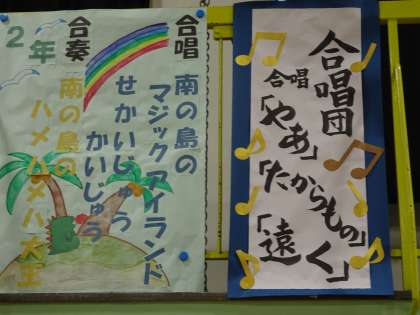 合唱
南の島の
マジックアイランド
せかいじゅう
かいじゅう
合奏
南の島の
ハメハメハ大王
2年
合唱団
合唱
「やあ」
「たからもの」
「遠く」